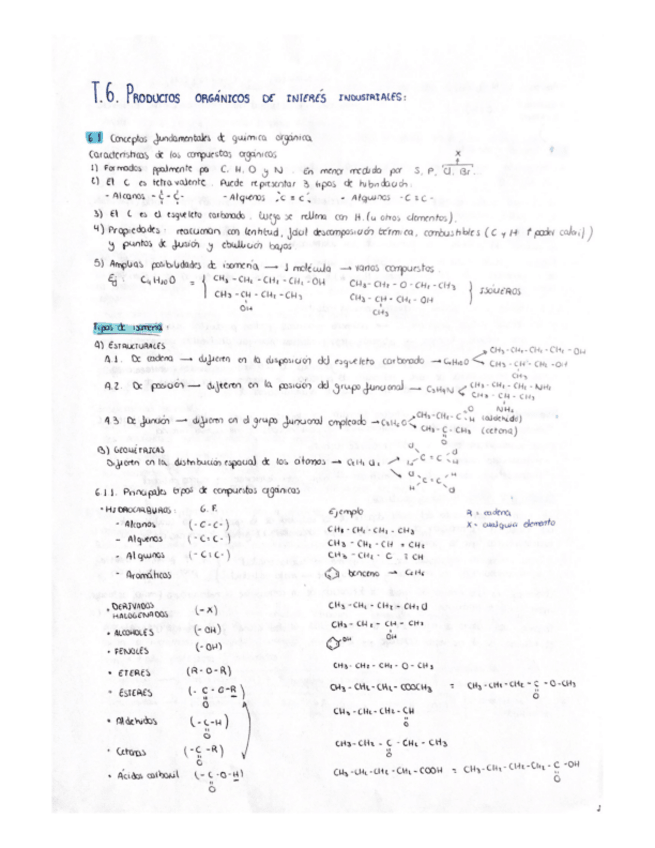 T.6. PRODUCTOS ORGÁNICOS DE INTERÉS INDUSTRIALES:
6.1 Conceptos fundamentales de química orgánica
Características de los compuestos orgánicos
X
1) Formados ppalmente por C, H, O y N. En menor medida por S, P, Cl, Br.
2) El C es tetravalente. Puede representar 3 tipos de hibridación.
- Alcanos -C-C- - Alquenos C=C - Alquinos -C≡C-
3) El C es el esqueleto carbonado. Luego se rellena con H. (u otros elementos).
4) Propiedades: reaccionan con lentitud, fácil descomposición térmica, combustibles (C y H ↑ poder calor.)
y puntos de fusión y ebullición bajos
5) Amplias posibilidades de isomería → 1 molécula → varios compuestos
Ej: C4H10O = CH3-CH2-CH2-CH2-OH CH3-CH2-O-CH2-CH3
CH3-CH-CH2-CH3 CH3-CH-CH2-OH ISÓMEROS
OH CH3
Tipos de isomería:
A) ESTRUCTURALES
A.1. De cadena → difieren en la disposición del esqueleto carbonado → C4H10O CH3-CH2-CH2-CH2-OH
CH3-CH-CH2-OH
CH3
A.2. De posición → difieren en la posición del grupo funcional → C3H9N CH3-CH2-CH2-NH2
CH3-CH-CH3
NH2
A.3. De función → difieren en el grupo funcional empleado → C3H6O CH3-CH2-C-H (aldehído)
O
CH3-C-CH3 (cetona)
O
B) GEOMÉTRICAS
Difieren en la distribución espacial de los átomos → C2H2Cl2
Cl Cl C=C H H
Cl H C=C H Cl
6.1.1. Principales tipos de compuestos orgánicos
• HIDROCARBUROS: G.F. Ejemplo R = cadena
- Alcanos (-C-C-) CH3-CH2-CH2-CH3 X = cualquier elemento
- Alquenos (-C=C-) CH3-CH2-CH=CH2
- Alquinos (-C≡C-) CH3-CH2-C≡CH
- Aromáticos benceno → C6H6
• DERIVADOS HALOGENADOS (-X) CH3-CH2-CH2-CH2Cl
• ALCOHOLES (-OH) CH3-CH2-CH-CH3
OH
• FENOLES (-OH) OH
• ETERES (R-O-R) CH3-CH2-CH2-O-CH3
• ÉSTERES (-C-O-R) CH3-CH2-CH2-COOCH3 = CH3-CH2-CH2-C-O-CH3
O O
• Aldehídos (-C-H) CH3-CH2-CH2-CH
O O
• Cetonas (-C-R) CH3-CH2-C-CH2-CH3
O O
• Ácidos carboxil (-C-O-H) CH3-CH2-CH2-CH2-COOH = CH3-CH2-CH2-CH2-C-OH
O O